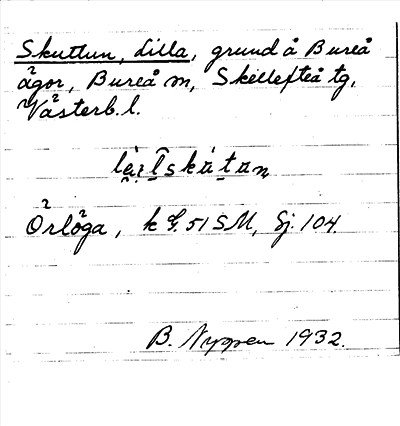 Skutlun, Lilla, grund å Bureå
ägor, Bureå m, Skellefteå tg,
Västerb. l.
Örlöga, k G. 51 SM, Sj. 104.
B. Nygren 1932.